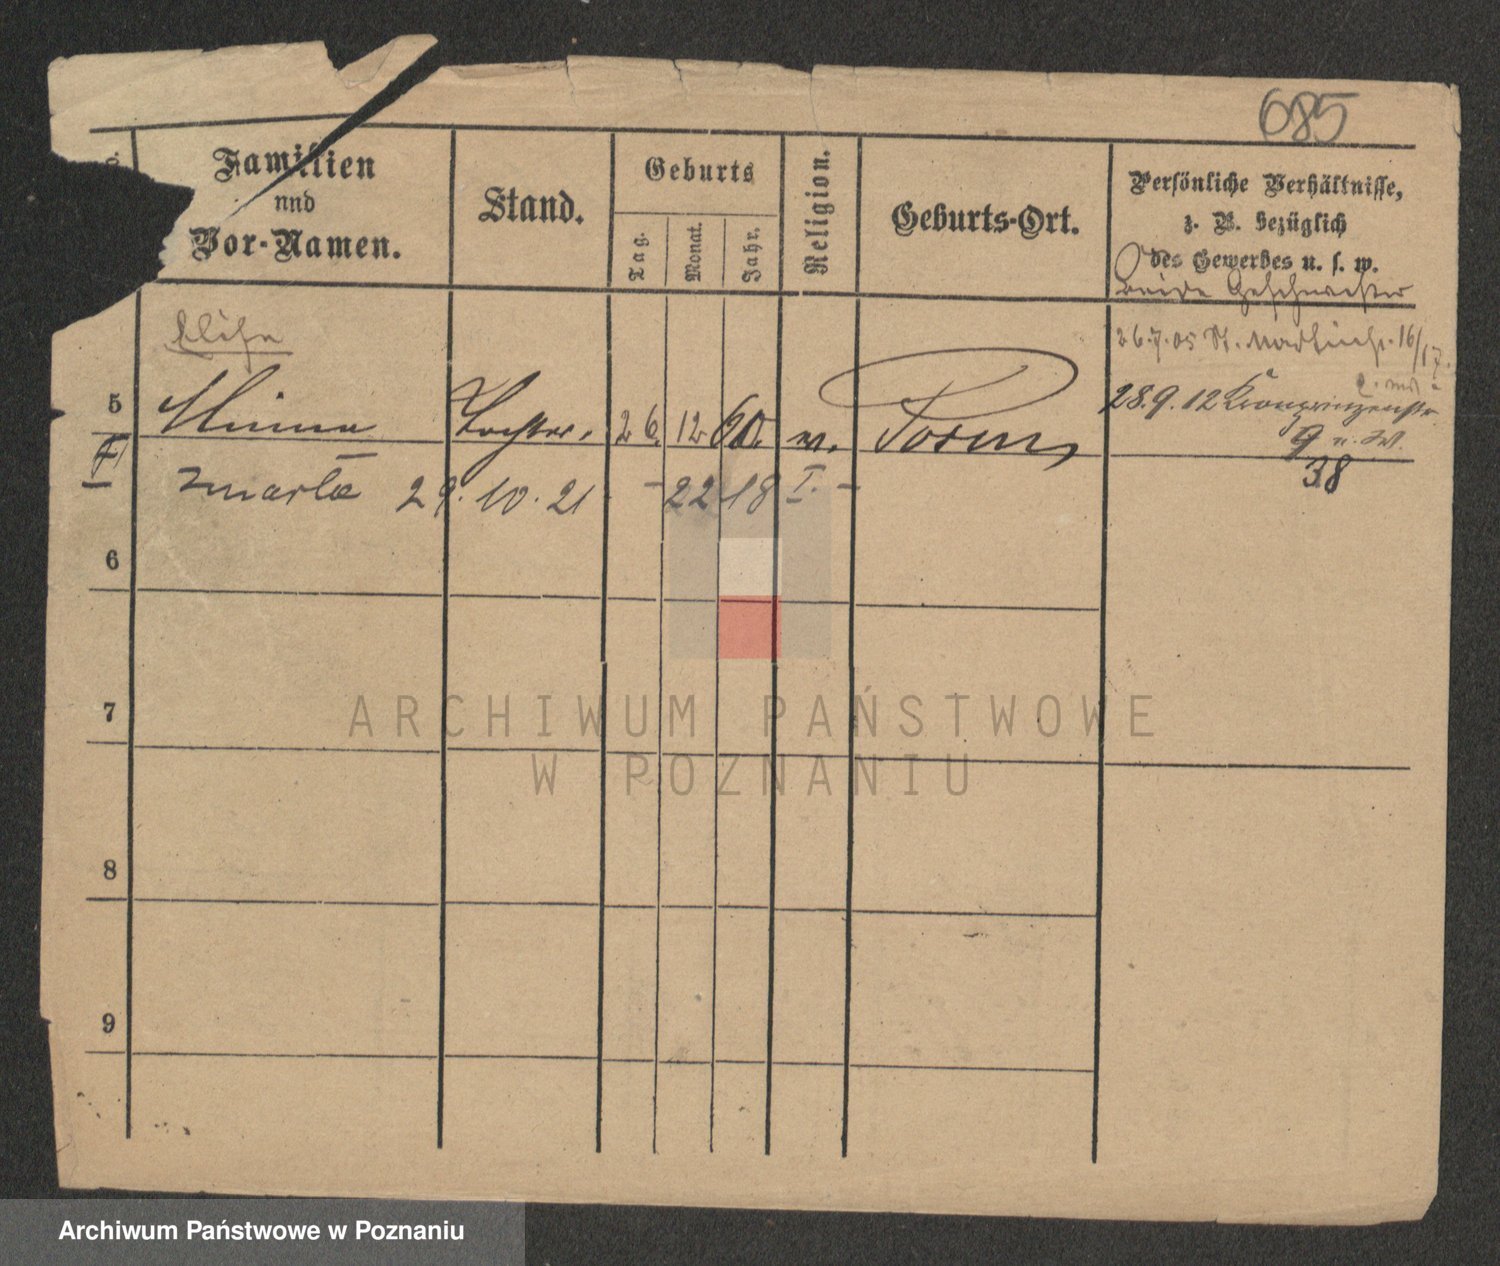 685
Familien
und
Vor-Namen.
Stand.
Geburts
Tag.
Monat.
Jahr.
Religion.
Geburts-Ort.
Persönliche Verhältnisse,
z. B. bezüglich
des Gewerbes u. s. w.
beide Geschwister
26.7.05 St. Martinstr. 16/17.
5 Minna Tochter. 26. 12 60. m. Posen
28.9.12 Kronprinzenstr.
9
38
zmarła 29.10.21 - 22 18 I. -
6
7
8
9
ARCHIWUM PAŃSTWOWE
W POZNANIU
Archiwum Państwowe w Poznaniu